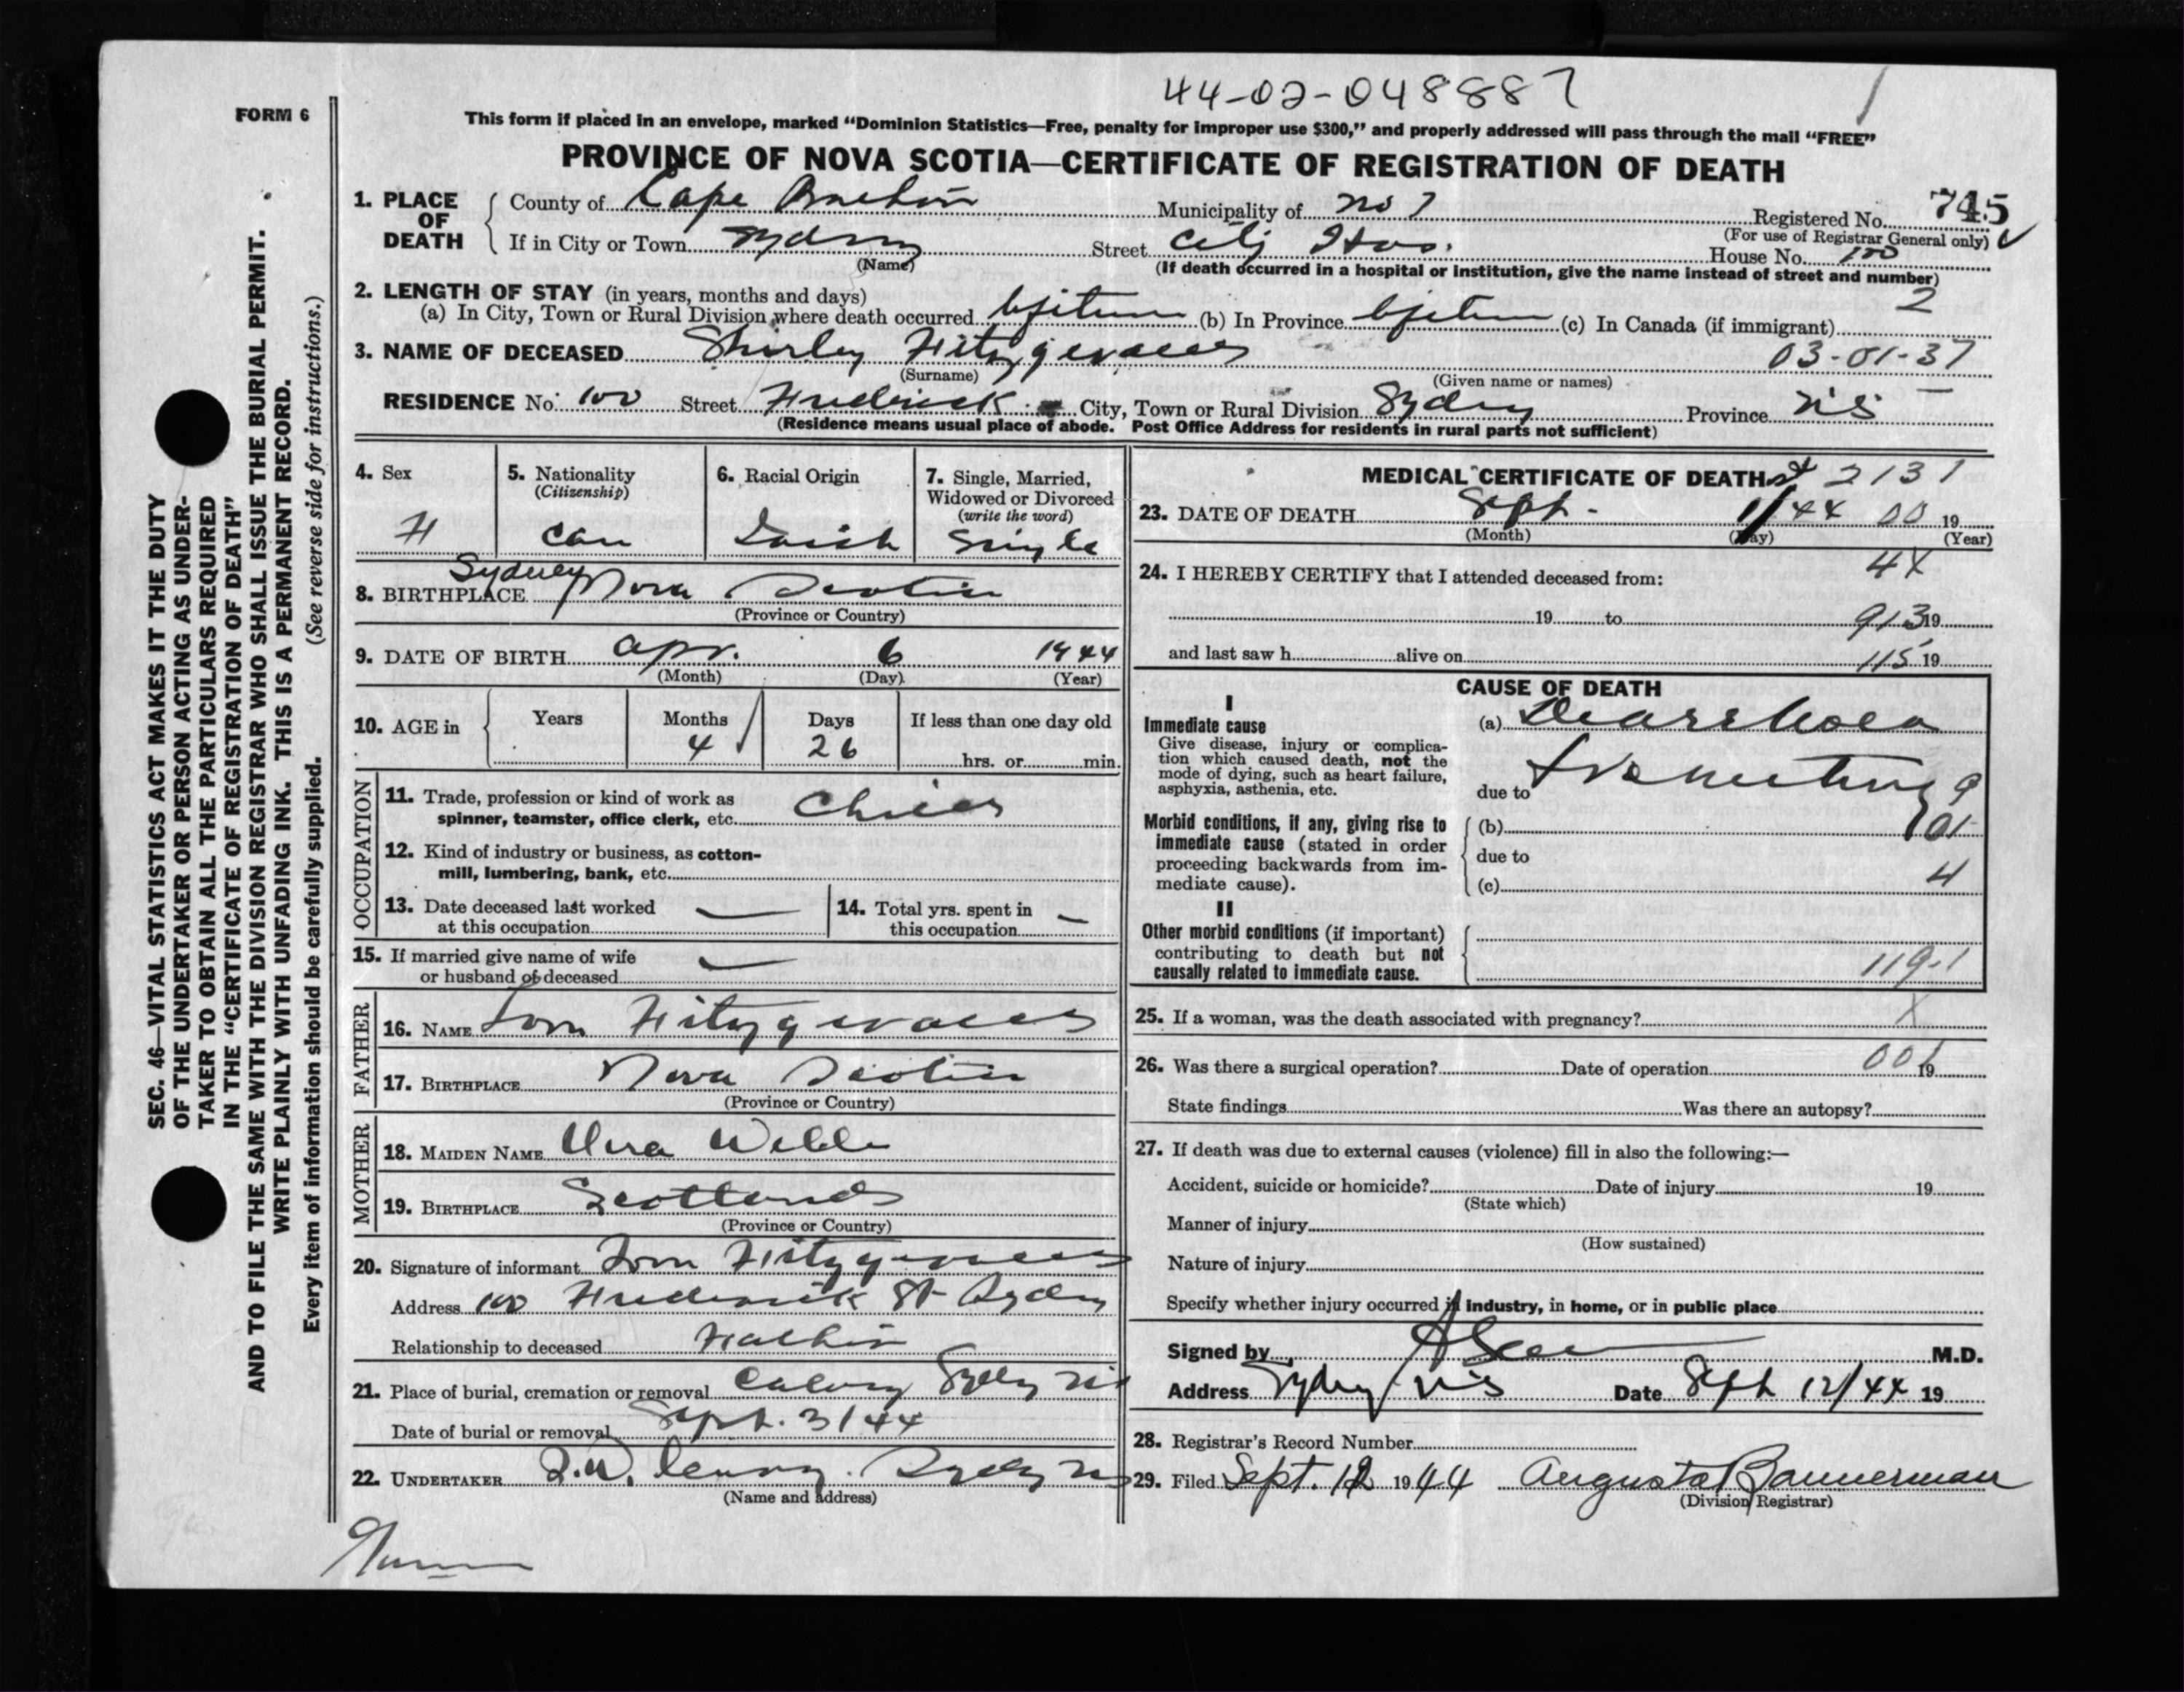 44-02-048887
FORM 6
This form if placed in an envelope, marked “Dominion Statistics—Free, penalty for improper use $300,” and properly addressed will pass through the mail “FREE”
PROVINCE OF NOVA SCOTIA—CERTIFICATE OF REGISTRATION OF DEATH
1. PLACE OF DEATH
County of Cape Breton Municipality of No 7 Registered No. 745
(For use of Registrar General only)
If in City or Town Sydney Street City Hos. House No. 100
(Name) (If death occurred in a hospital or institution, give the name instead of street and number)
2. LENGTH OF STAY (in years, months and days) 2
(a) In City, Town or Rural Division where death occurred lifetime (b) In Province lifetime (c) In Canada (if immigrant)
3. NAME OF DECEASED Shirley Fitzgerald 03-01-37
(Surname) (Given name or names)
RESIDENCE No. 100 Street Frederick City, Town or Rural Division Sydney Province N.S
(Residence means usual place of abode. Post Office Address for residents in rural parts not sufficient)
4. Sex
F
5. Nationality
(Citizenship)
Can
6. Racial Origin
Irish
7. Single, Married,
Widowed or Divorced
(write the word)
Single
8. BIRTHPLACE Sydney Nova Scotia
(Province or Country)
9. DATE OF BIRTH Apr. 6 1944
(Month) (Day) (Year)
10. AGE in Years Months Days If less than one day old
4 26 hrs. or min.
OCCUPATION
11. Trade, profession or kind of work as
spinner, teamster, office clerk, etc. Child
12. Kind of industry or business, as cotton-
mill, lumbering, bank, etc.
13. Date deceased last worked
at this occupation —
14. Total yrs. spent in
this occupation —
15. If married give name of wife
or husband of deceased —
FATHER
16. NAME Tom Fitzgerald
17. BIRTHPLACE Nova Scotia
(Province or Country)
MOTHER
18. MAIDEN NAME Vera Webb
19. BIRTHPLACE Scotland
(Province or Country)
20. Signature of informant Tom Fitzgerald
Address 100 Frederick St Sydney
Relationship to deceased Father
21. Place of burial, cremation or removal Calvary Sydney NS
Date of burial or removal Sept. 3/44
22. UNDERTAKER Sydney NS
(Name and address)
MEDICAL CERTIFICATE OF DEATH 2131
23. DATE OF DEATH Sept. 1/44 00 19
(Month) (Day) (Year)
24. I HEREBY CERTIFY that I attended deceased from: 4X
19 to 913 19
and last saw h alive on 115 19
CAUSE OF DEATH
I
Immediate cause
Give disease, injury or complica-
tion which caused death, not the
mode of dying, such as heart failure,
asphyxia, asthenia, etc.
(a) Diarrhoea
due to & vomiting 9
Morbid conditions, if any, giving rise to
immediate cause (stated in order
proceeding backwards from im-
mediate cause).
(b) 01
due to
(c) 4
II
Other morbid conditions (if important)
contributing to death but not
causally related to immediate cause.
119-1
25. If a woman, was the death associated with pregnancy? X
26. Was there a surgical operation? Date of operation 19
State findings Was there an autopsy?
27. If death was due to external causes (violence) fill in also the following:—
Accident, suicide or homicide? Date of injury 19
(State which)
Manner of injury
(How sustained)
Nature of injury
Specify whether injury occurred in industry, in home, or in public place
Signed by M.D.
Address Sydney NS Date Sept 12/44 19
28. Registrar's Record Number
29. Filed Sept. 12 1944 Augusta Bannerman
(Division Registrar)
SEC. 46—VITAL STATISTICS ACT MAKES IT THE DUTY
OF THE UNDERTAKER OR PERSON ACTING AS UNDER-
TAKER TO OBTAIN ALL THE PARTICULARS REQUIRED
IN THE “CERTIFICATE OF REGISTRATION OF DEATH”
AND TO FILE THE SAME WITH THE DIVISION REGISTRAR WHO SHALL ISSUE THE BURIAL PERMIT.
WRITE PLAINLY WITH UNFADING INK. THIS IS A PERMANENT RECORD.
Every item of information should be carefully supplied. (See reverse side for instructions.)